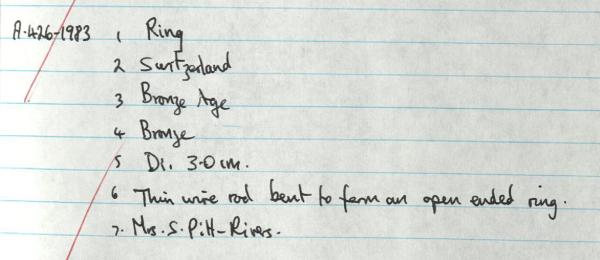 A.426-1983 1 Ring
2 Switzerland
3 Bronze Age
4 Bronze
5 Di. 3.0 cm.
6 Thin wire rod bent to form an open ended ring.
7. Mrs. S. Pitt-Rivers.